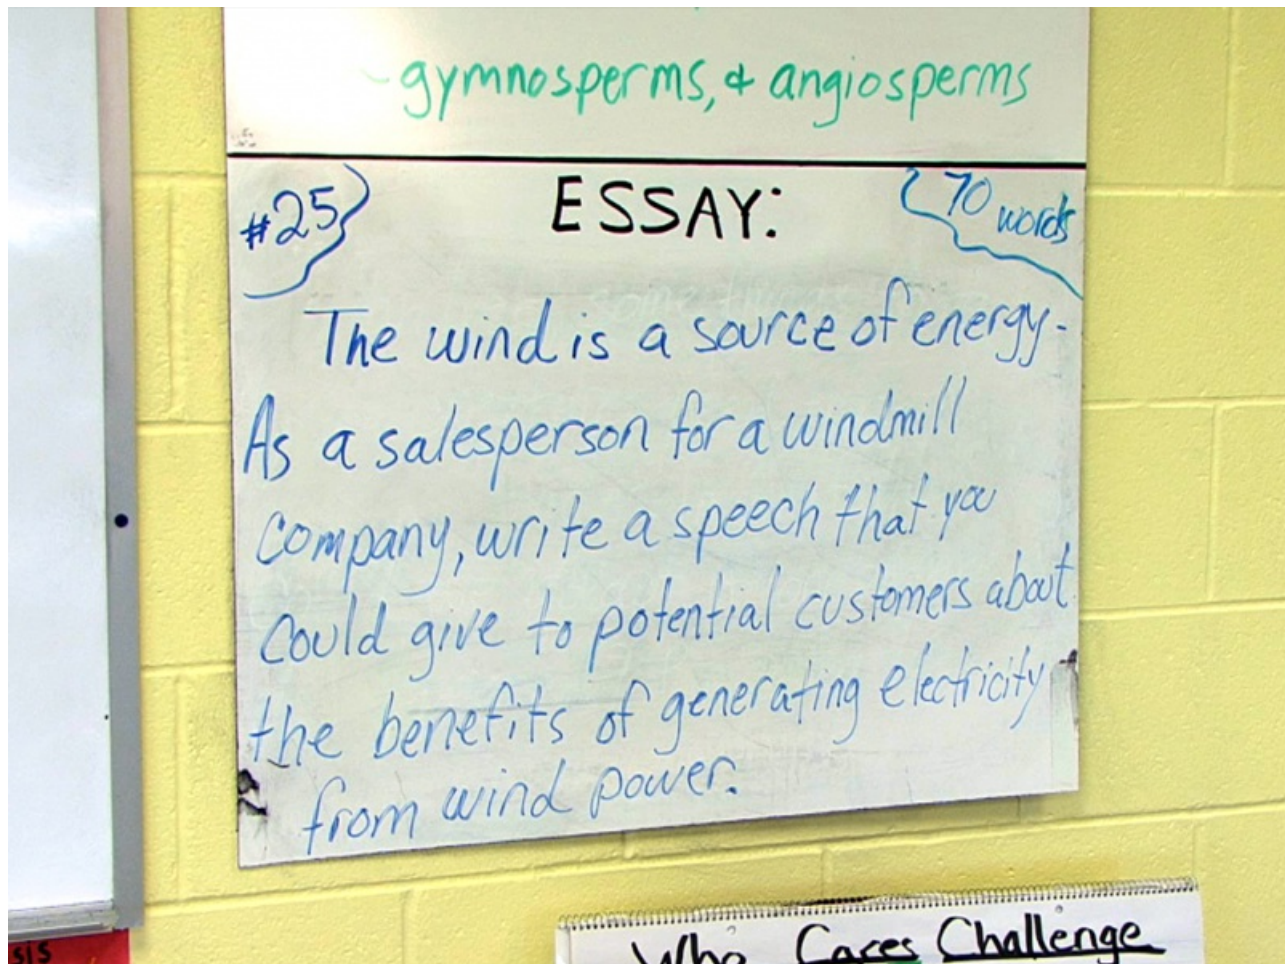 -gymnosperms, & angiosperms
#25
ESSAY:
70 words
The wind is a source of energy.
As a salesperson for a windmill
company, write a speech that you
could give to potential customers about
the benefits of generating electricity
from wind power.
Who Cares Challenge
sis